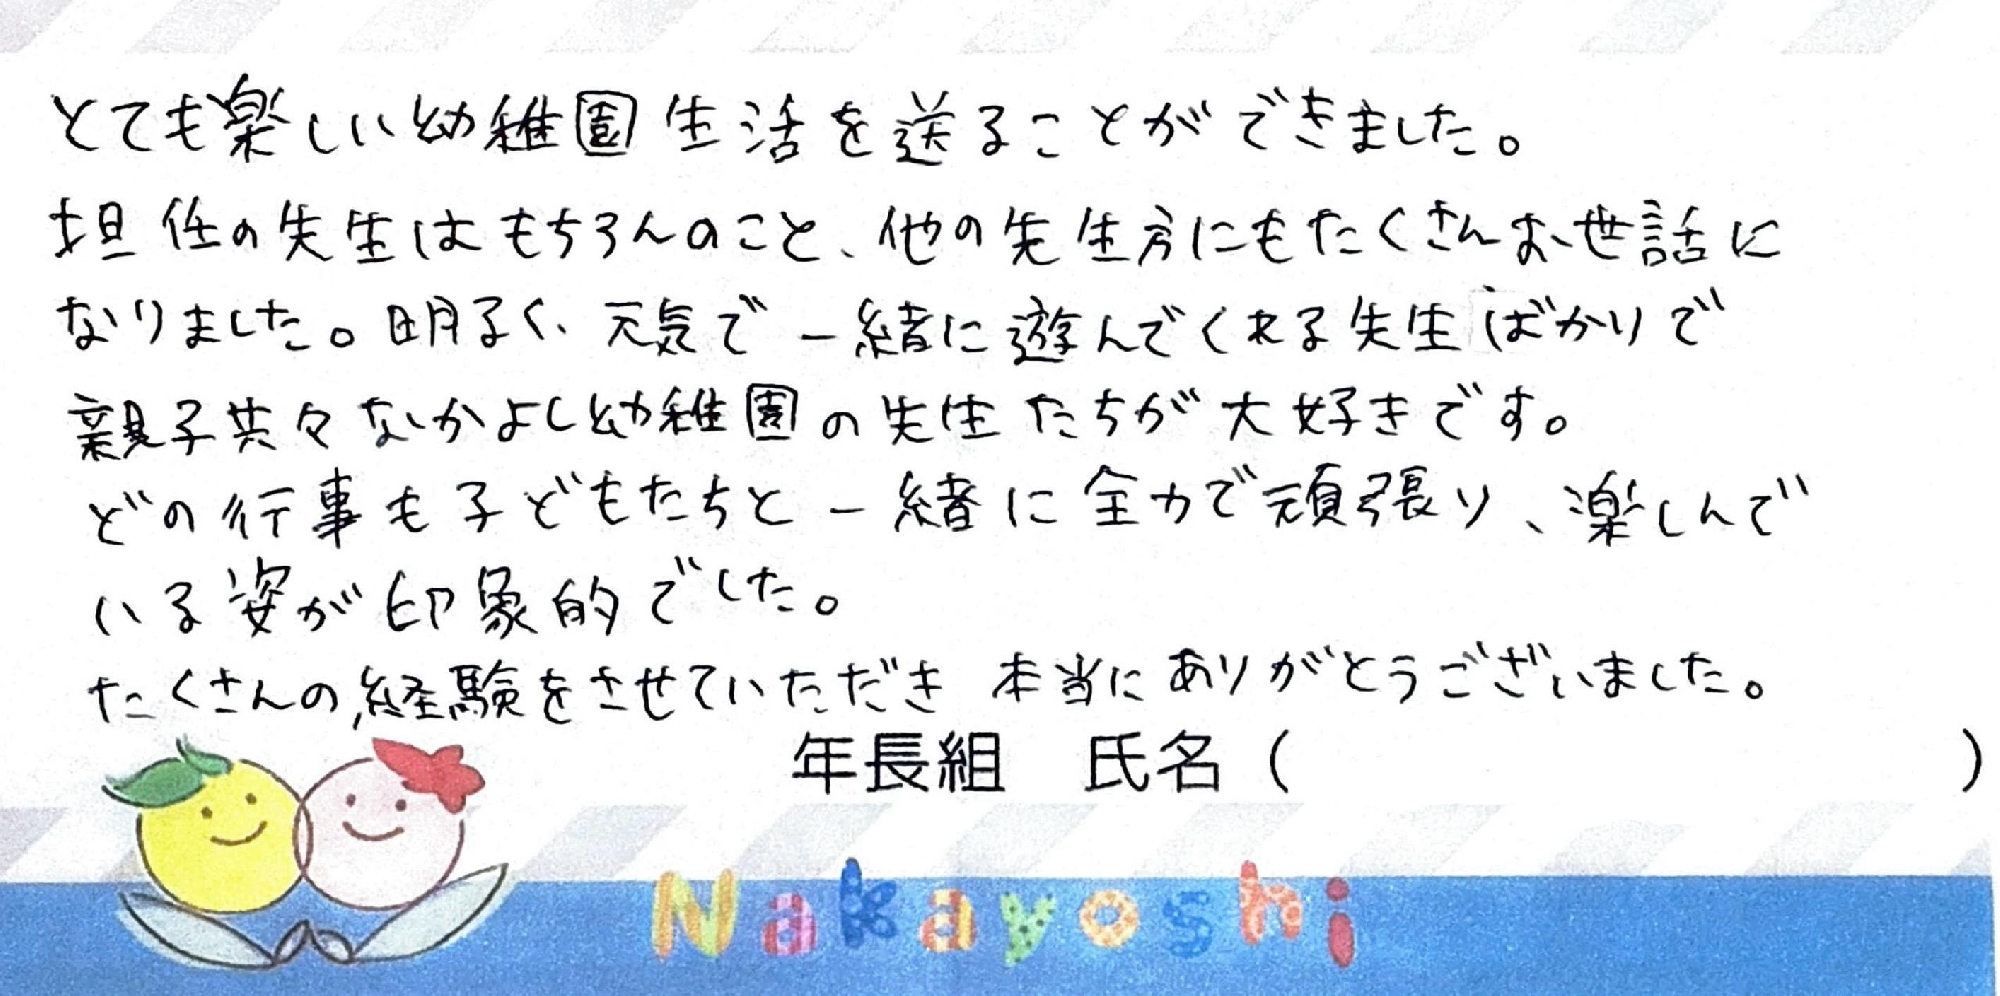 とても楽しい幼稚園生活を送ることができました。
担任の先生はもちろんのこと、他の先生方にもたくさんお世話に
なりました。明るく、元気で一緒に遊んでくれる先生ばかりで
親子共々なかよし幼稚園の先生たちが大好きです。
どの行事も子どもたちと一緒に全力で頑張り、楽しんで
いる姿が印象的でした。
たくさんの経験をさせていただき 本当にありがとうございました。
年長組　氏名（　　　　　　　　　）
Nakayoshi